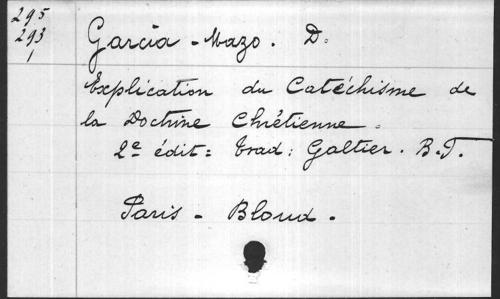 295
293
1
Garcia - Mazo. D.
Explication du Catéchisme de
la Doctrine Chrétienne.
2e édit: trad: Galtier. B.T.
Paris - Bloud.